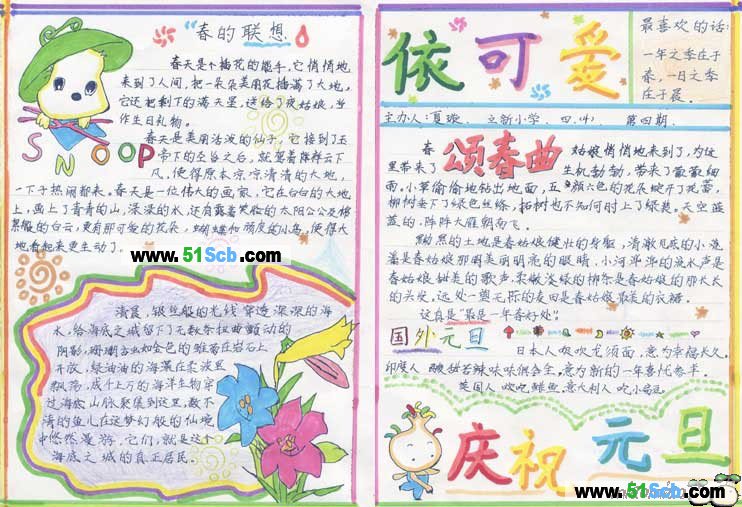 “春的联想”
春天是个插花的能手,它悄悄地
来到了人间,把一朵朵美丽花插满了大地。
它还把剩下的满天星,送给了夜姑娘,当
作生日礼物。
春天是美丽活泼的仙子,它接到玉
帝下的圣旨之后,就驾着祥云下
凡,使得原本凉凉清清的大地,
一下子热闹起来。春天是一位伟大的画家,它在白白的大地
上,画上了青青的山,深深的水,还有露着笑脸的太阳公公及
的白云,更有那可爱的花朵,蝴蝶和顽皮的小鸟,使得大
地看起来更生动了
SNOOP
www.51Scb.com
清晨,银丝般的光线穿透深深的海
水,给海底之城留下了无数条扭曲颤动的
阴影,珊瑚若如金色的雏菊在岩石上
开放,绿油油的海藻在柔波里
飘荡,成千上万的海洋生物穿
过海底山脉聚集到这里,数不
清的鱼儿在这梦幻般的仙境
中悠然漫游,它们,就是这个
海底之城的真正居民。
www.51Scb.com
依可爱
最喜欢的话:
一年之季庄于
春,一日之季
庄于晨。
主办人:夏璇、立新小学、四.(4) 第四期.
颂春曲
春 姑娘悄悄地来到了,为这
里带来了 生机勃勃,带来了蒙蒙细
雨。小草偷偷地钻出地面,五颜六色的花朵绽开了花蕾,
柳树垂下了绿色丝绦,柘树也不知何时上了绿装。天空蓝
蓝的,阵阵大雁朝南飞。
黝黑的土地是春姑娘健壮的身躯,清澈见底的小流
潘是春姑娘那明美丽明亮的眼睛,小河潺潺的流水声是
春姑娘甜美的歌声,柔嫩淡绿的柳条是春姑娘的那长长
的头发,远处一望无际的麦田是春姑娘最美的衣裙。
这真是“最是一年春好处”!
国外元旦
日本人吸吹龙须面,意为幸福长久。
印度人 酸甜苦辣味味俱全尝,意为新的一年喜忧参半。
英国人 吹吃鲱鱼,意大利人吃小扁豆。
庆祝元旦
www.51Scb.com